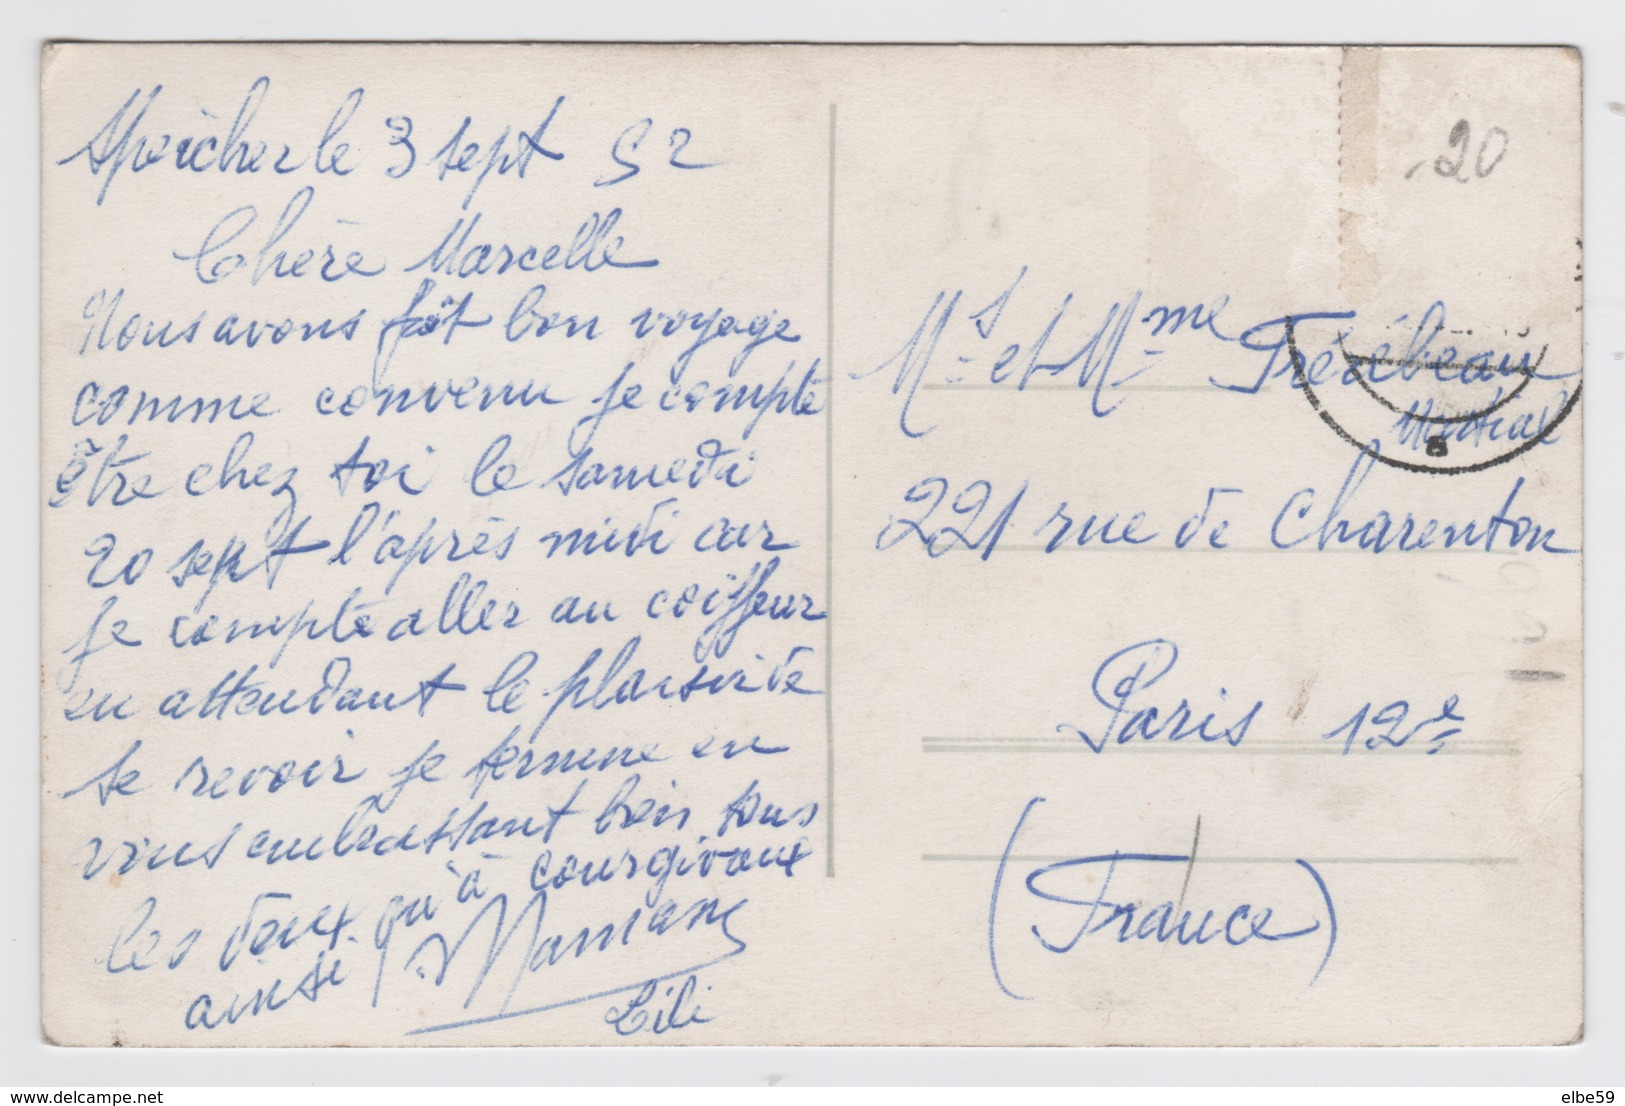 Speicher le 3 sept 52
Chère Marcelle
Nous avons fât bon voyage
comme convenu je compte
être chez toi le samedi
20 sept l'après midi car
je compte aller au coiffeur
en attendant le plaisir de
te revoir je termine en
vous embrassant bein tous
les deux
ainsi qu'à courgivaux
Maman
Lili
20
Mr et Mme
Martial
221 rue de Charenton
Paris 12e
(France)
delcampe.net
elbe59